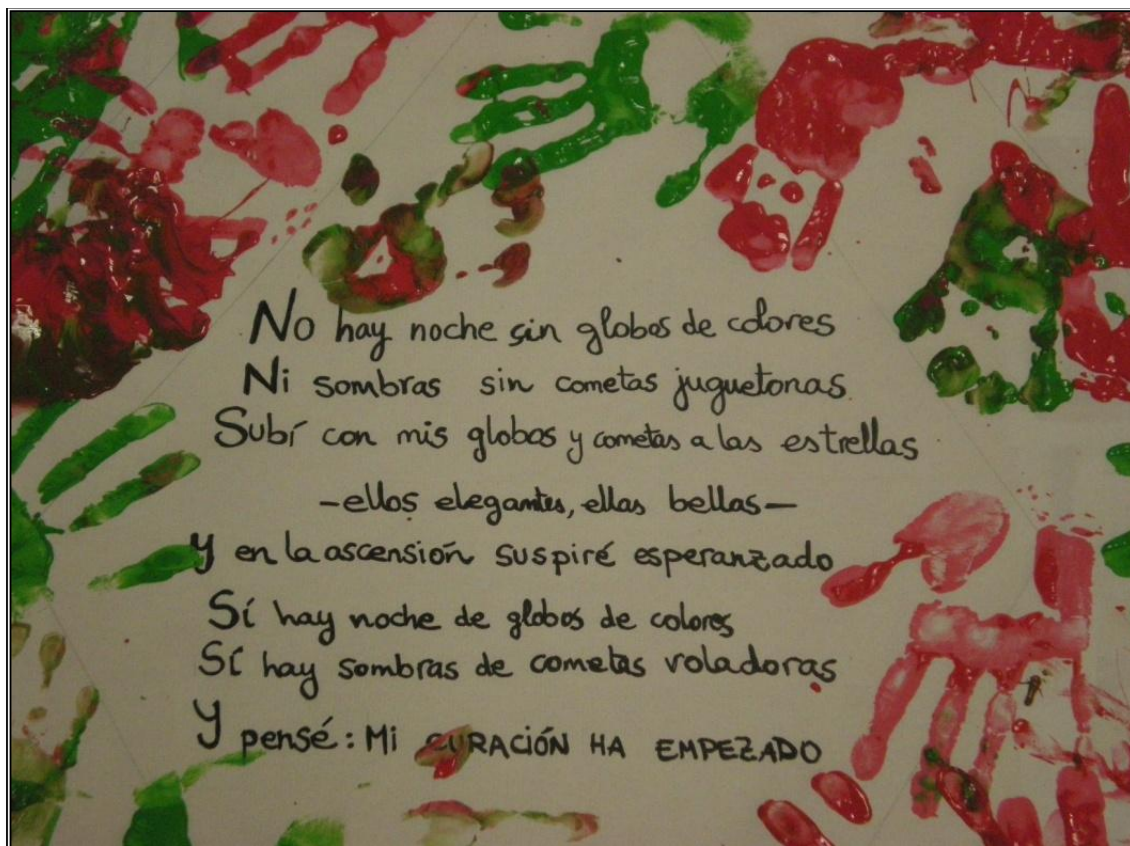 No hay noche sin globos de colores
Ni sombras sin cometas juguetonas
Subí con mis globos y cometas a las estrellas
-ellos elegantes, ellas bellas-
Y en la ascensión suspiré esperanzado
Sí hay noche de globos de colores
Sí hay sombras de cometas voladoras
Y pensé: Mi CURACIÓN HA EMPEZADO